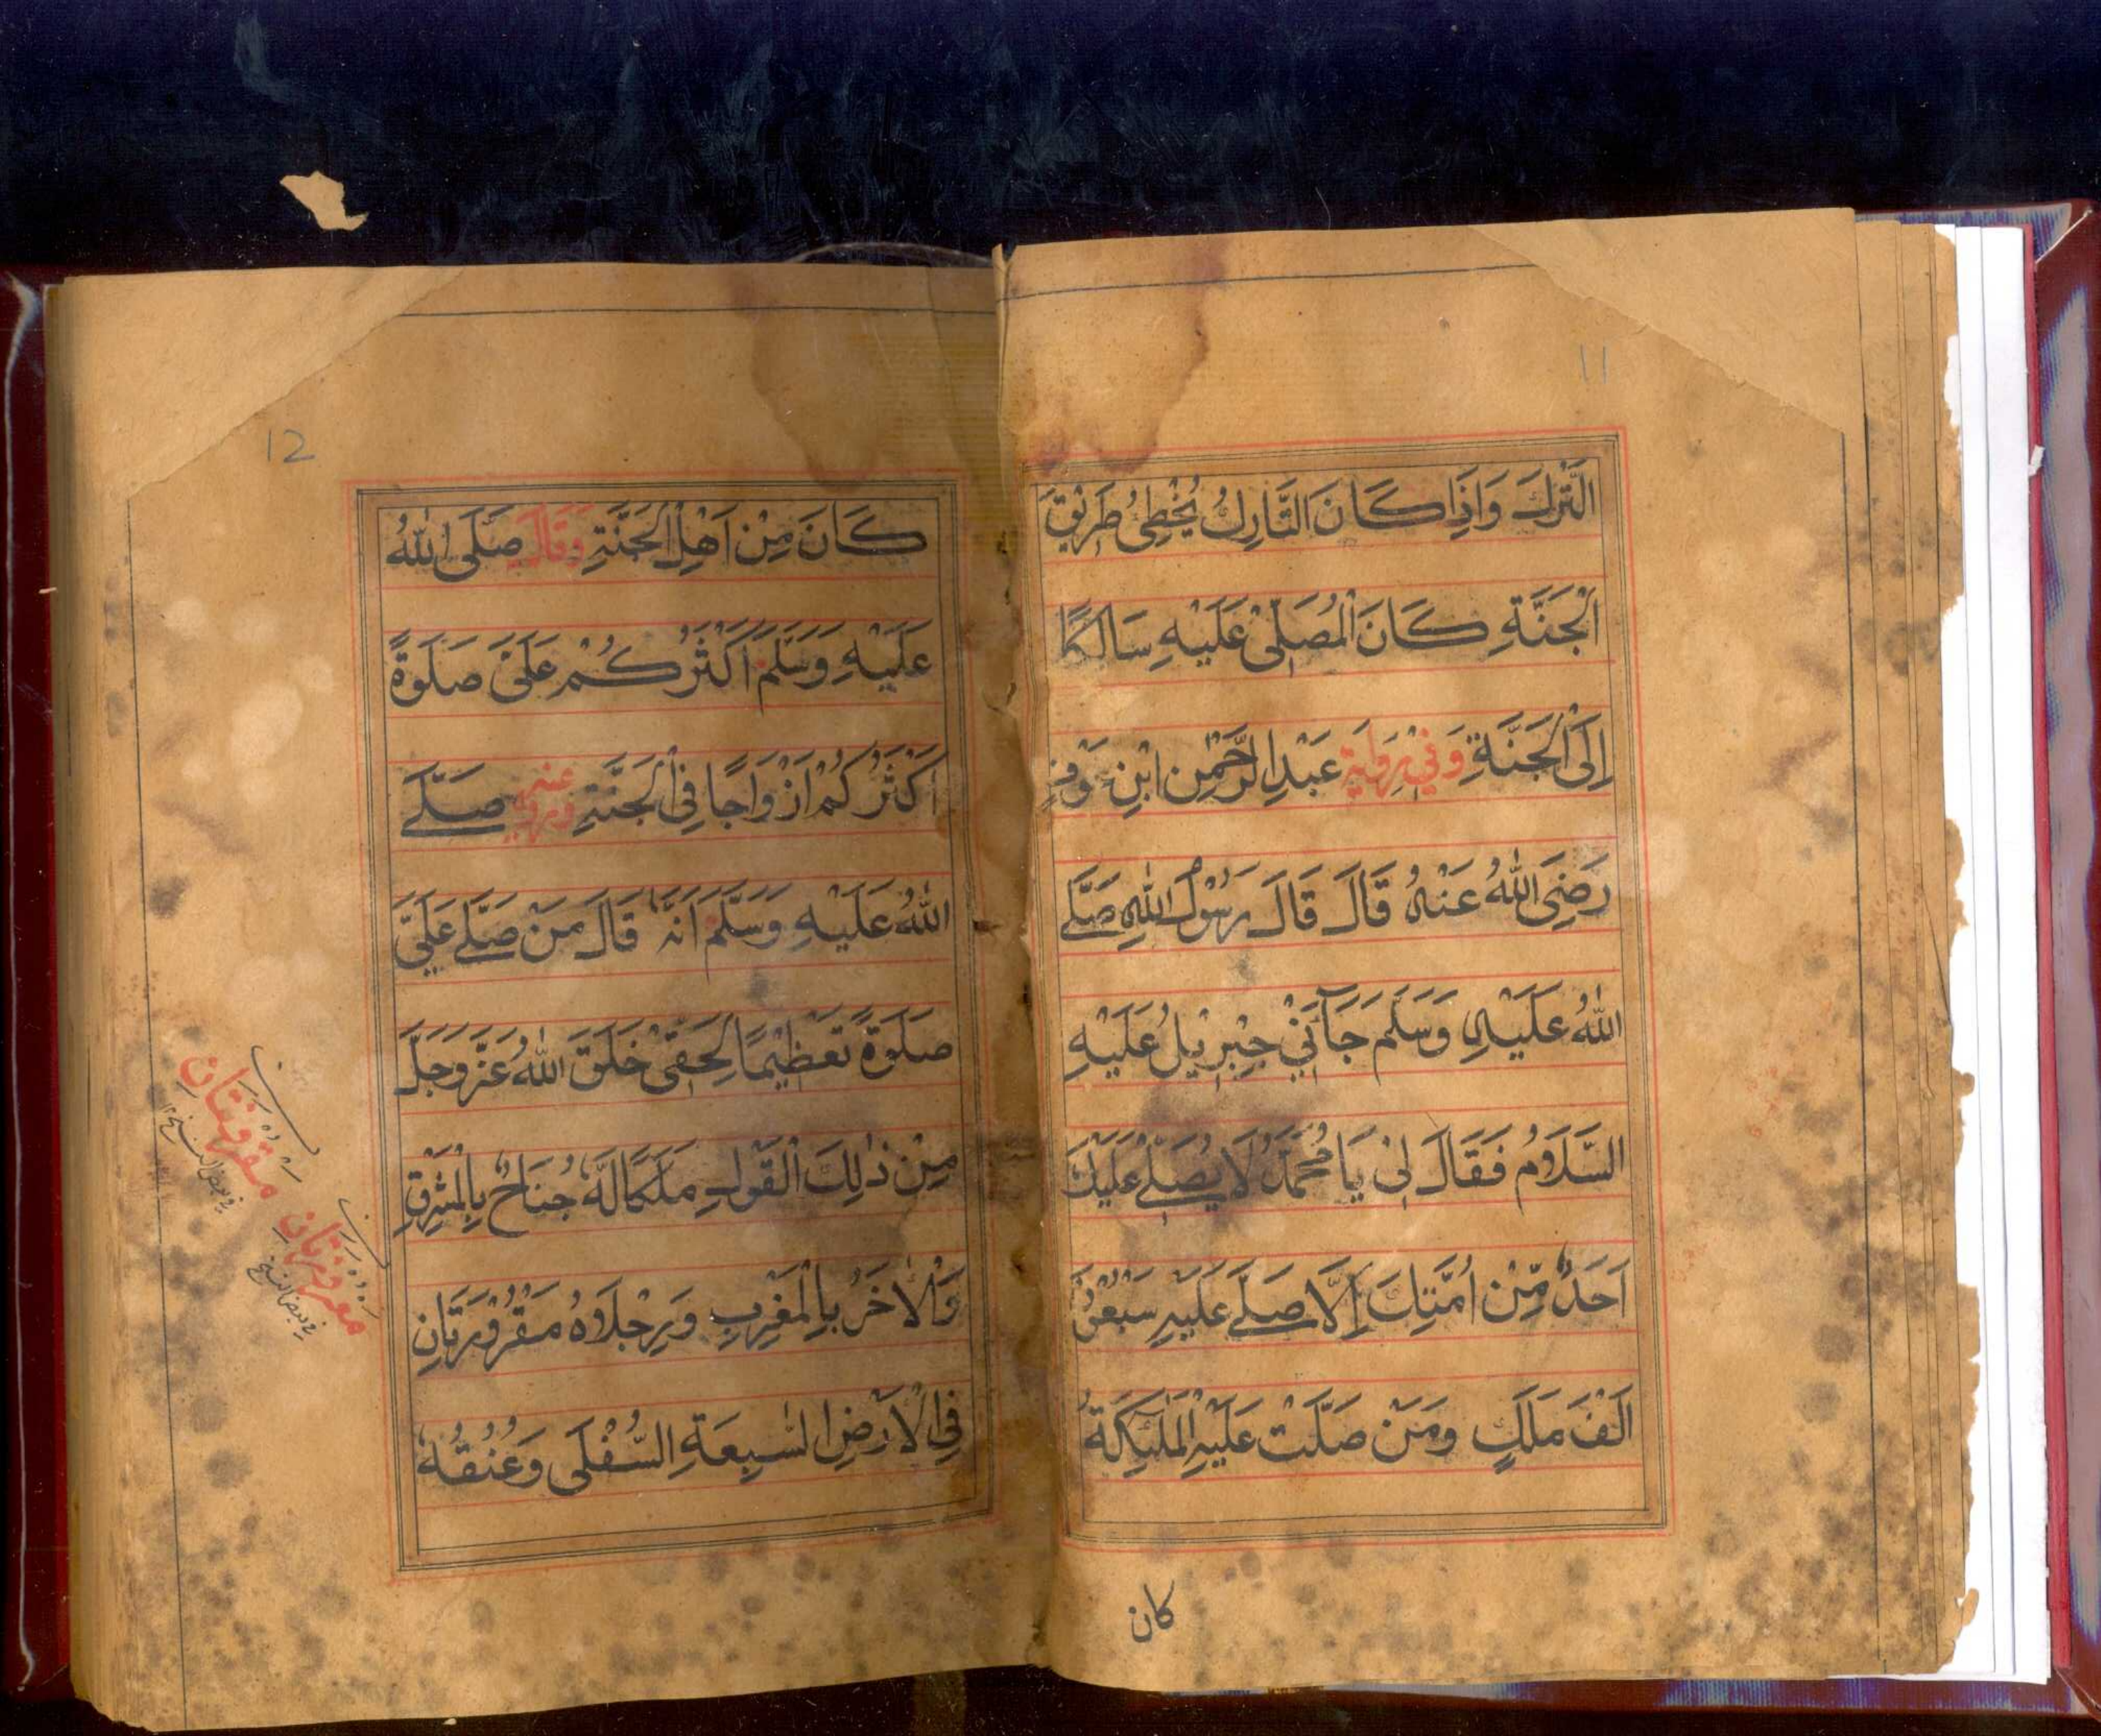 11
التَّرْكَ وَاِذَا كَانَ التَّارِكُ يُخْطِئُ طَرِيْقَ
الْجَنَّةِ كَانَ الْمُصَلِّيْ عَلَيْهِ سَالِكًا
اِلَى الْجَنَّةِ وَفِيْ رِوَايَةِ عَبْدِ الرَّحْمٰنِ ابْنِ عَوْفٍ
رَضِيَ اللّٰهُ عَنْهُ قَالَ قَالَ رَسُوْلُ اللّٰهِ صَلَّے
اللّٰهُ عَلَيْهِ وَسَلَّمَ جَآءَنِيْ جِبْرِيْلُ عَلَيْهِ
السَّلَامُ فَقَالَ لِيْ يَا مُحَمَّدُ لَا يُصَلِّے عَلَيْكَ
اَحَدٌ مِّنْ اُمَّتِكَ اِلَّا صَلَّے عَلَيْهِ سَبْعُوْنَ
اَلْفَ مَلَكٍ وَمَنْ صَلَّتْ عَلَيْهِ الْمَلٰٓئِكَةُ
كان
12
كَانَ مِنْ اَهْلِ الْجَنَّةِ وَقَالَ صَلَّى اللّٰهُ
عَلَيْهِ وَسَلَّمَ اَكْثَرُكُمْ عَلَيَّ صَلٰوةً
اَكْثَرُكُمْ اَزْوَاجًا فِي الْجَنَّةِ وَرُوِيَ عَنْهُ صَلَّے
اللّٰهُ عَلَيْهِ وَسَلَّمَ اَنَّهٗ قَالَ مَنْ صَلَّے عَلَيَّ
صَلٰوةً تَعْظِيْمًا لِحَقِّيْ خَلَقَ اللّٰهُ عَزَّ وَجَلَّ
مِنْ ذٰلِكَ الْقَوْلِ مَلَكًا لَهٗ جَنَاحٌ بِالْمَشْرِقِ
وَالْاٰخَرُ بِالْمَغْرِبِ وَرِجْلَاهُ مَقْرُوْرَتَانِ
فِي الْاَرْضِ السَّابِعَةِ السُّفْلٰى وَعُنُقُهٗ
مقرونتان
في بعض النسخ ١٢
مغروزتان
في بعض النسخ